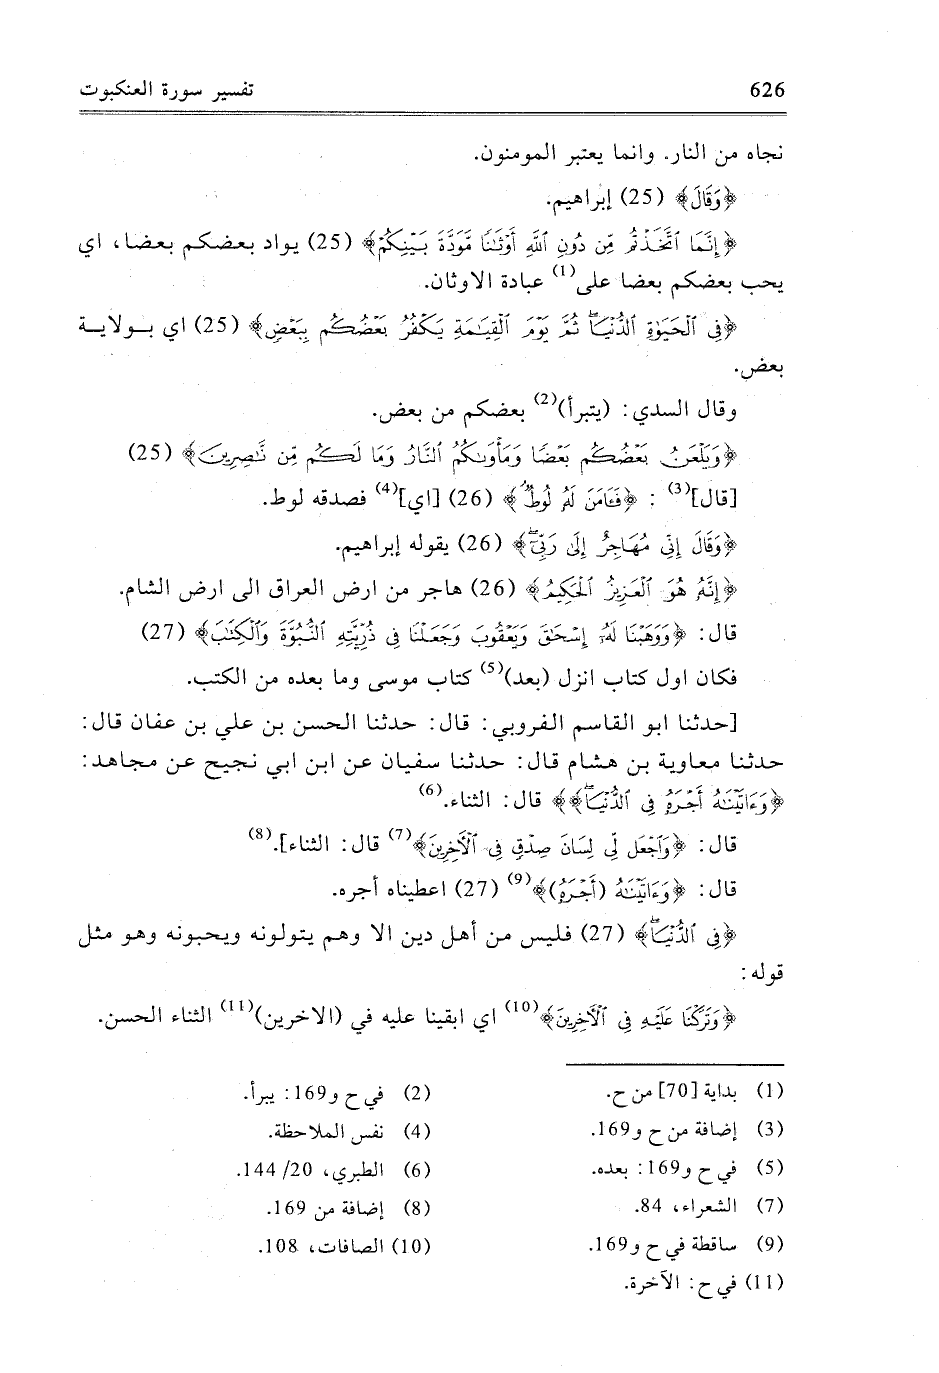 626
تفسير سورة العنكبوت
نجاه من النار. وانما يعتبر المومنون.
﴿وَقَالَ﴾ (25) إبراهيم.
﴿إِنَّمَا ٱتَّخَذْتُم مِّن دُونِ ٱللَّهِ أَوْثَٰنًا مَّوَدَّةَ بَيْنِكُمْ﴾ (25) يواد بعضكم بعضا، اي
يحب بعضكم بعضا على(1) عبادة الاوثان.
﴿فِى ٱلْحَيَوٰةِ ٱلدُّنْيَا ۖ ثُمَّ يَوْمَ ٱلْقِيَٰمَةِ يَكْفُرُ بَعْضُكُم بِبَعْضٍ﴾ (25) اي بـولايـة
بعض.
وقال السدي: (يتبرأ)(2) بعضكم من بعض.
﴿وَيَلْعَنُ بَعْضُكُم بَعْضًا وَمَأْوَىٰكُمُ ٱلنَّارُ وَمَا لَكُم مِّن نَّٰصِرِينَ﴾ (25)
[قال](3) : ﴿فَـَٔامَنَ لَهُۥ لُوطٌ ۘ﴾ (26) [اي](4) فصدقه لوط.
﴿وَقَالَ إِنِّى مُهَاجِرٌ إِلَىٰ رَبِّىٓ ۖ﴾ (26) يقوله إبراهيم.
﴿إِنَّهُۥ هُوَ ٱلْعَزِيزُ ٱلْحَكِيمُ﴾ (26) هاجر من ارض العراق الى ارض الشام.
قال: ﴿وَوَهَبْنَا لَهُۥٓ إِسْحَٰقَ وَيَعْقُوبَ وَجَعَلْنَا فِى ذُرِّيَّتِهِ ٱلنُّبُوَّةَ وَٱلْكِتَٰبَ﴾ (27)
فكان اول كتاب انزل (بعد)(5) كتاب موسى وما بعده من الكتب.
[حدثنا ابو القاسم الفروبي: قال: حدثنا الحسن بن علي بن عفان قال:
حدثنا معاوية بن هشام قال: حدثنا سفيان عن ابن ابي نجيح عن مجاهد:
﴿وَءَاتَيْنَٰهُ أَجْرَهُۥ فِى ٱلدُّنْيَا ۖ﴾﴾ قال: الثناء.(6)
قال: ﴿وَٱجْعَل لِّى لِسَانَ صِدْقٍ فِى ٱلْـَٔاخِرِينَ﴾(7) قال: الثناء].(8)
قال: ﴿وَءَاتَيْنَٰهُ (أَجْرَهُۥ)﴾(9) (27) اعطيناه أجره.
﴿فِى ٱلدُّنْيَا ۖ﴾ (27) فليس من أهل دين الا وهم يتولونه ويحبونه وهو مثل
قوله:
﴿وَتَرَكْنَا عَلَيْهِ فِى ٱلْـَٔاخِرِينَ﴾(10) اي ابقينا عليه في (الاخرين)(11) الثناء الحسن.
(1) بداية [70] من ح.
(2) في ح و169: يبرأ.
(3) إضافة من ح و169.
(4) نفس الملاحظة.
(5) في ح و169: بعده.
(6) الطبري، 20/ 144.
(7) الشعراء، 84.
(8) إضافة من 169.
(9) ساقطة في ح و169.
(10) الصافات، 108.
(11) في ح: الآخرة.